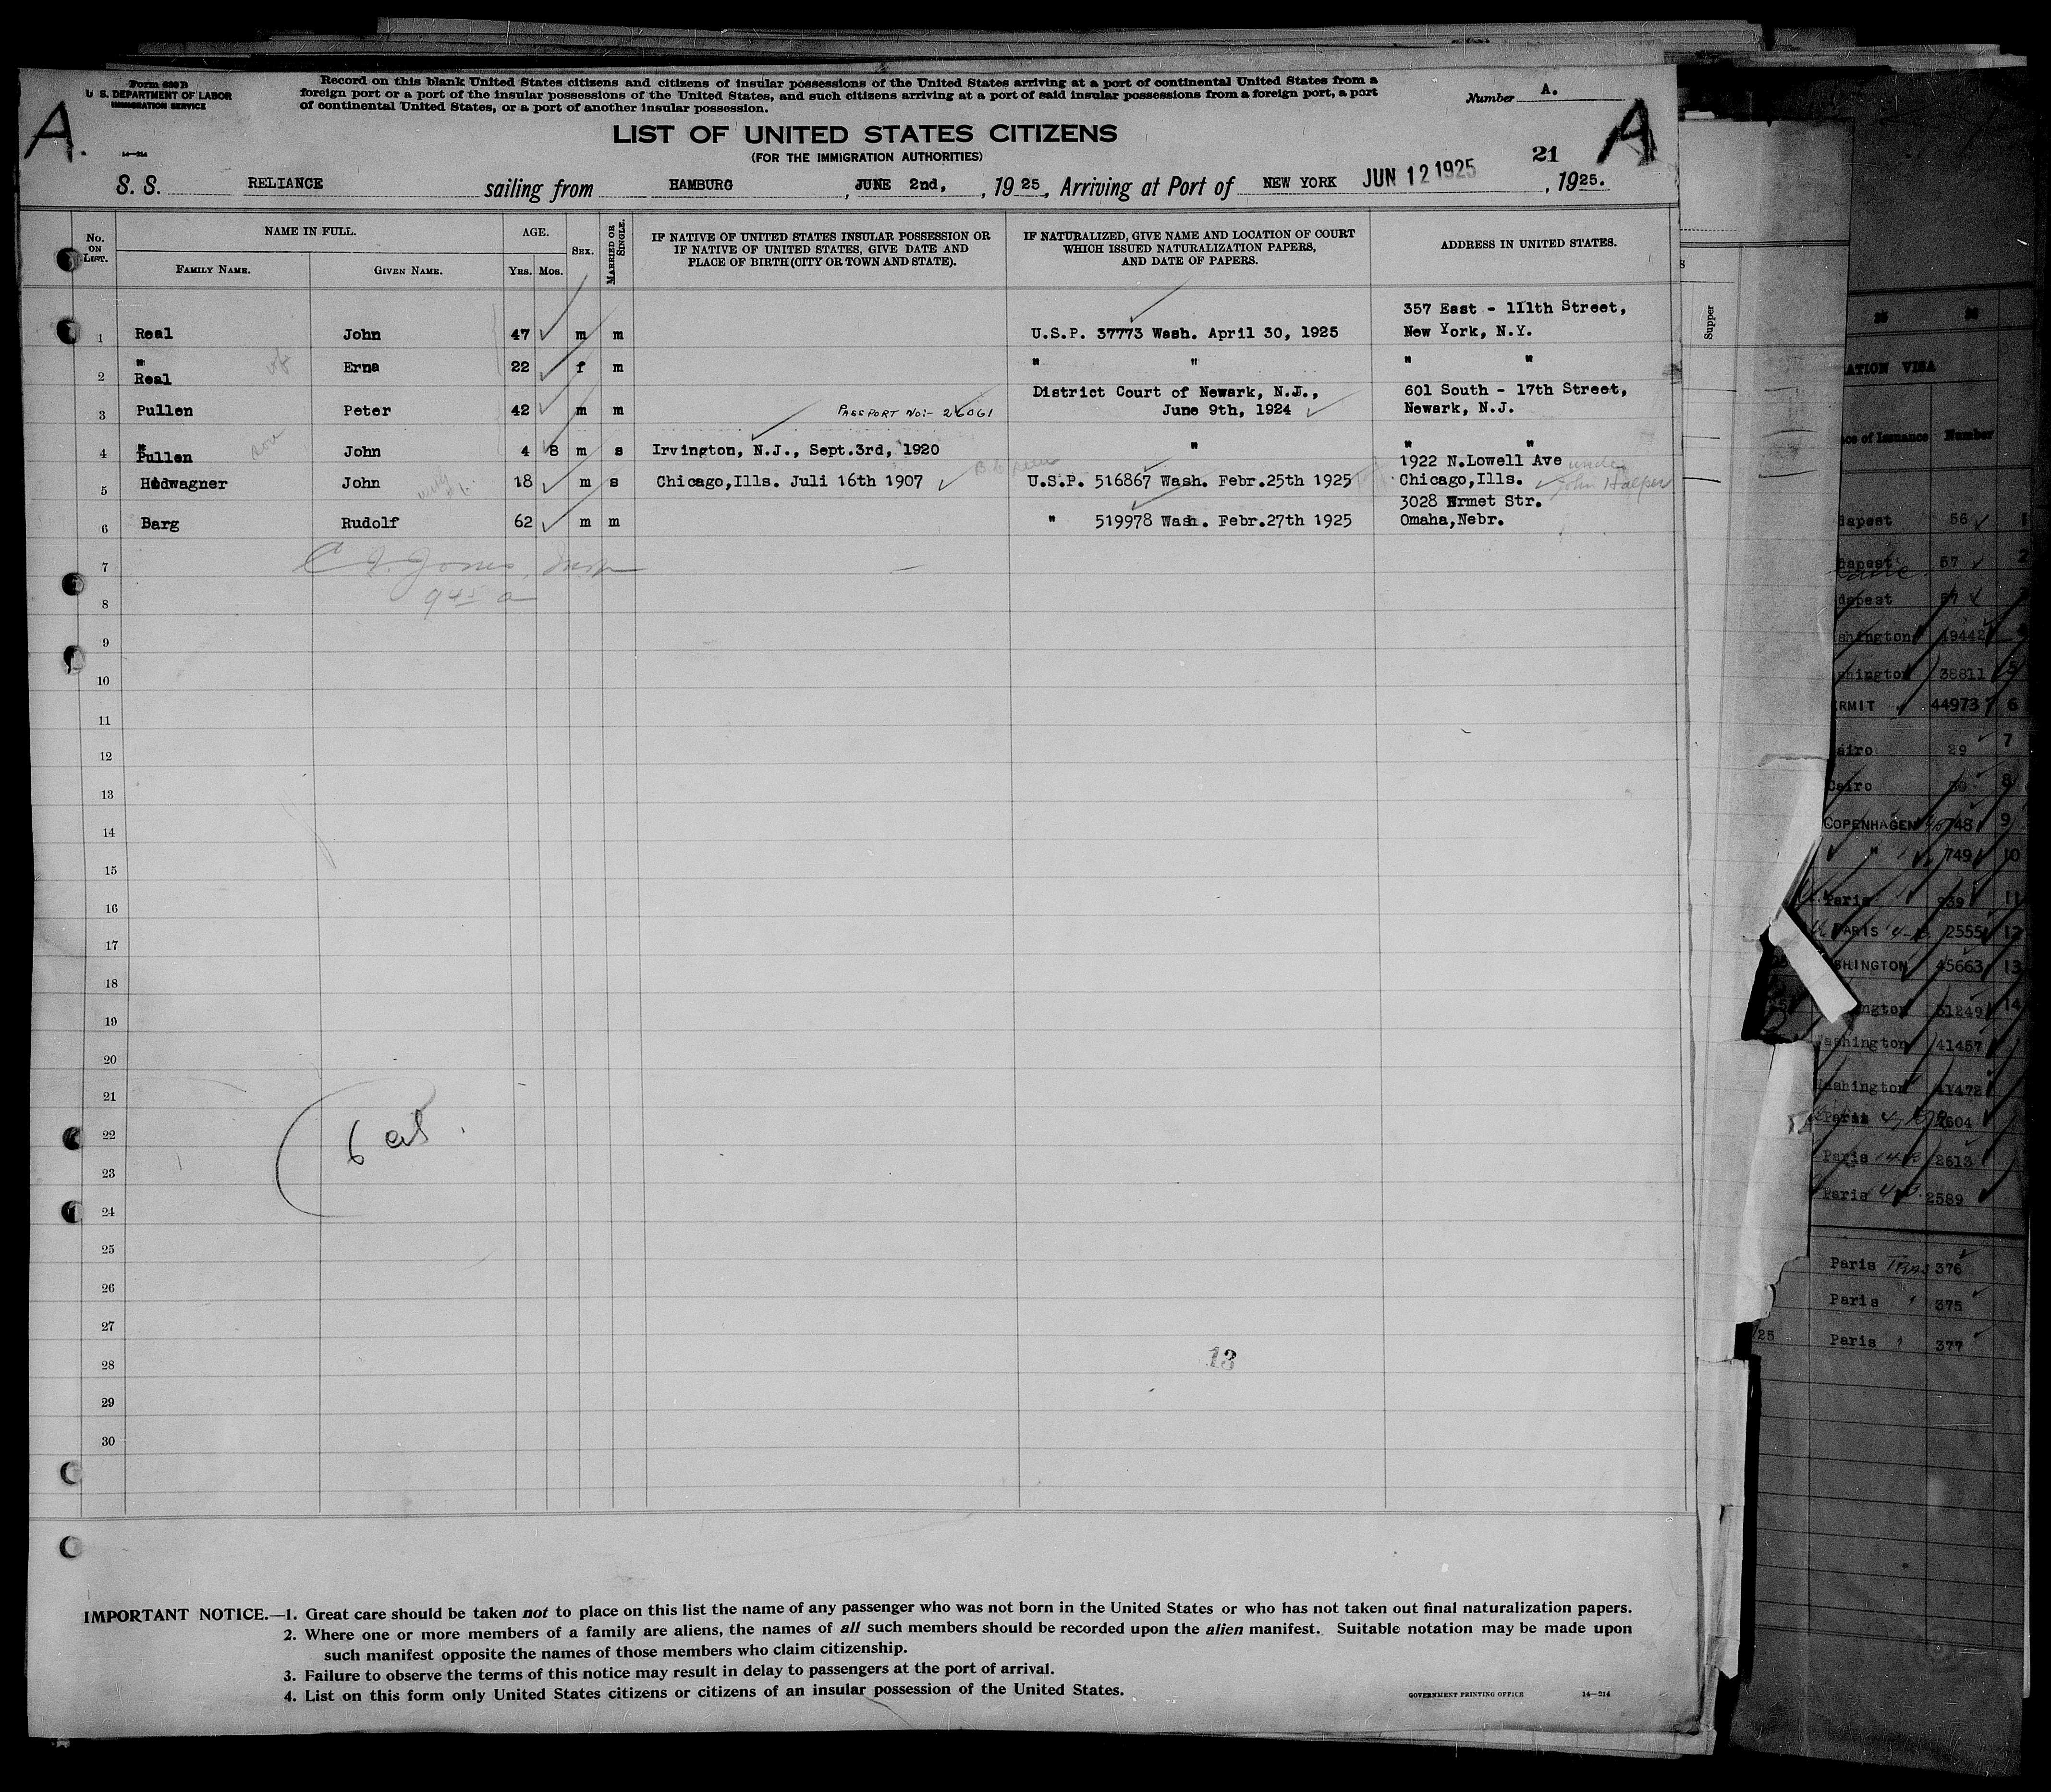 Form 630 B
U. S. DEPARTMENT OF LABOR
IMMIGRATION SERVICE
Record on this blank United States citizens and citizens of insular possessions of the United States arriving at a port of continental United States from a
foreign port or a port of the insular possessions of the United States, and such citizens arriving at a port of said insular possessions from a foreign port, a port
of continental United States, or a port of another insular possession.
Number A.
A.
A
LIST OF UNITED STATES CITIZENS
(FOR THE IMMIGRATION AUTHORITIES)
14—214
21
S. S. RELIANCE sailing from HAMBURG, JUNE 2nd, , 1925, Arriving at Port of NEW YORK JUN 12 1925, 1925.
No. ON LIST.
NAME IN FULL.
FAMILY NAME.
GIVEN NAME.
AGE.
YRS. MOS.
SEX.
MARRIED OR SINGLE.
IF NATIVE OF UNITED STATES INSULAR POSSESSION OR
IF NATIVE OF UNITED STATES, GIVE DATE AND
PLACE OF BIRTH (CITY OR TOWN AND STATE).
IF NATURALIZED, GIVE NAME AND LOCATION OF COURT
WHICH ISSUED NATURALIZATION PAPERS,
AND DATE OF PAPERS.
ADDRESS IN UNITED STATES.
357 East - 111th Street,
1 Real John 47 m m U.S.P. 37773 Wash. April 30, 1925 New York, N.Y.
" Erna 22 f m " " " "
2 Real
District Court of Newark, N.J., 601 South - 17th Street,
3 Pullen Peter 42 m m PASSPORT NO:- 26061 June 9th, 1924 Newark, N.J.
"
4 Pullen son John 4 8 m s Irvington, N.J., Sept.3rd, 1920 " " "
1922 N.Lowell Ave under
5 Hodwagner John 18 m s Chicago,Ills. Juli 16th 1907 U.S.P. 516867 Wash. Febr.25th 1925 Chicago,Ills. John Halper
3028 Ermet Str.
6 Barg Rudolf 62 m m " 519978 Wash. Febr.27th 1925 Omaha,Nebr.
7
C J. Jones, Insp
8
9 45 a
9
10
11
12
13
14
15
16
17
18
19
20
21
22
6
23
24
25
26
27
28
13
29
30
IMPORTANT NOTICE.—1. Great care should be taken not to place on this list the name of any passenger who was not born in the United States or who has not taken out final naturalization papers.
2. Where one or more members of a family are aliens, the names of all such members should be recorded upon the alien manifest. Suitable notation may be made upon
such manifest opposite the names of those members who claim citizenship.
3. Failure to observe the terms of this notice may result in delay to passengers at the port of arrival.
4. List on this form only United States citizens or citizens of an insular possession of the United States.
GOVERNMENT PRINTING OFFICE 14—214
Supper
ATION VISA
ce of Issuance Number
dapest 56 1
dapest 57 2
dapest
shington 19442
shington 38811 5
ERMIT 44973 6
airo 29 7
Cairo 30 8
COPENHAGEN 748 9
" 749 10
Paris 939 11
PARIS 2555 12
SHINGTON 45663 13
ngton 31249 14
Washington 41457
Washington 41472
Paris 2604
Paris 2613
Paris 2589
Paris 376
Paris 375
/25 Paris 377